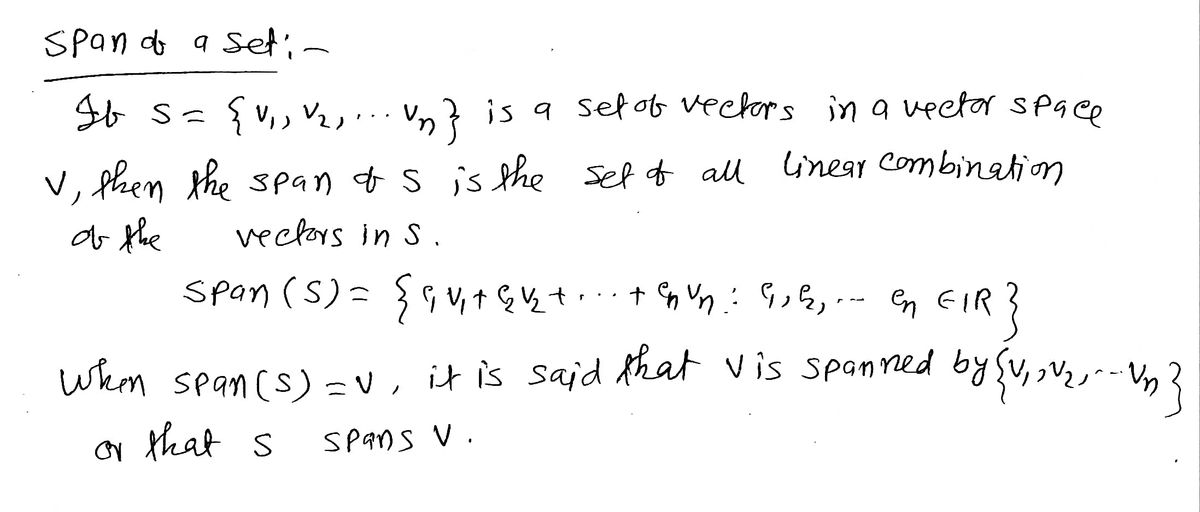 Span of a set:-
If S = { v₁, v₂, ... vₙ} is a set of vectors in a vector space
V, then the span of S is the set of all linear combination
of the vectors in S.
span (S) = { c₁ v₁ + c₂ v₂ + ... + cₙ vₙ : c₁, c₂, ... cₙ ∈ IR }
When span(S) = V, it is said that V is spanned by {v₁, v₂, ... vₙ}
or that S spans V.